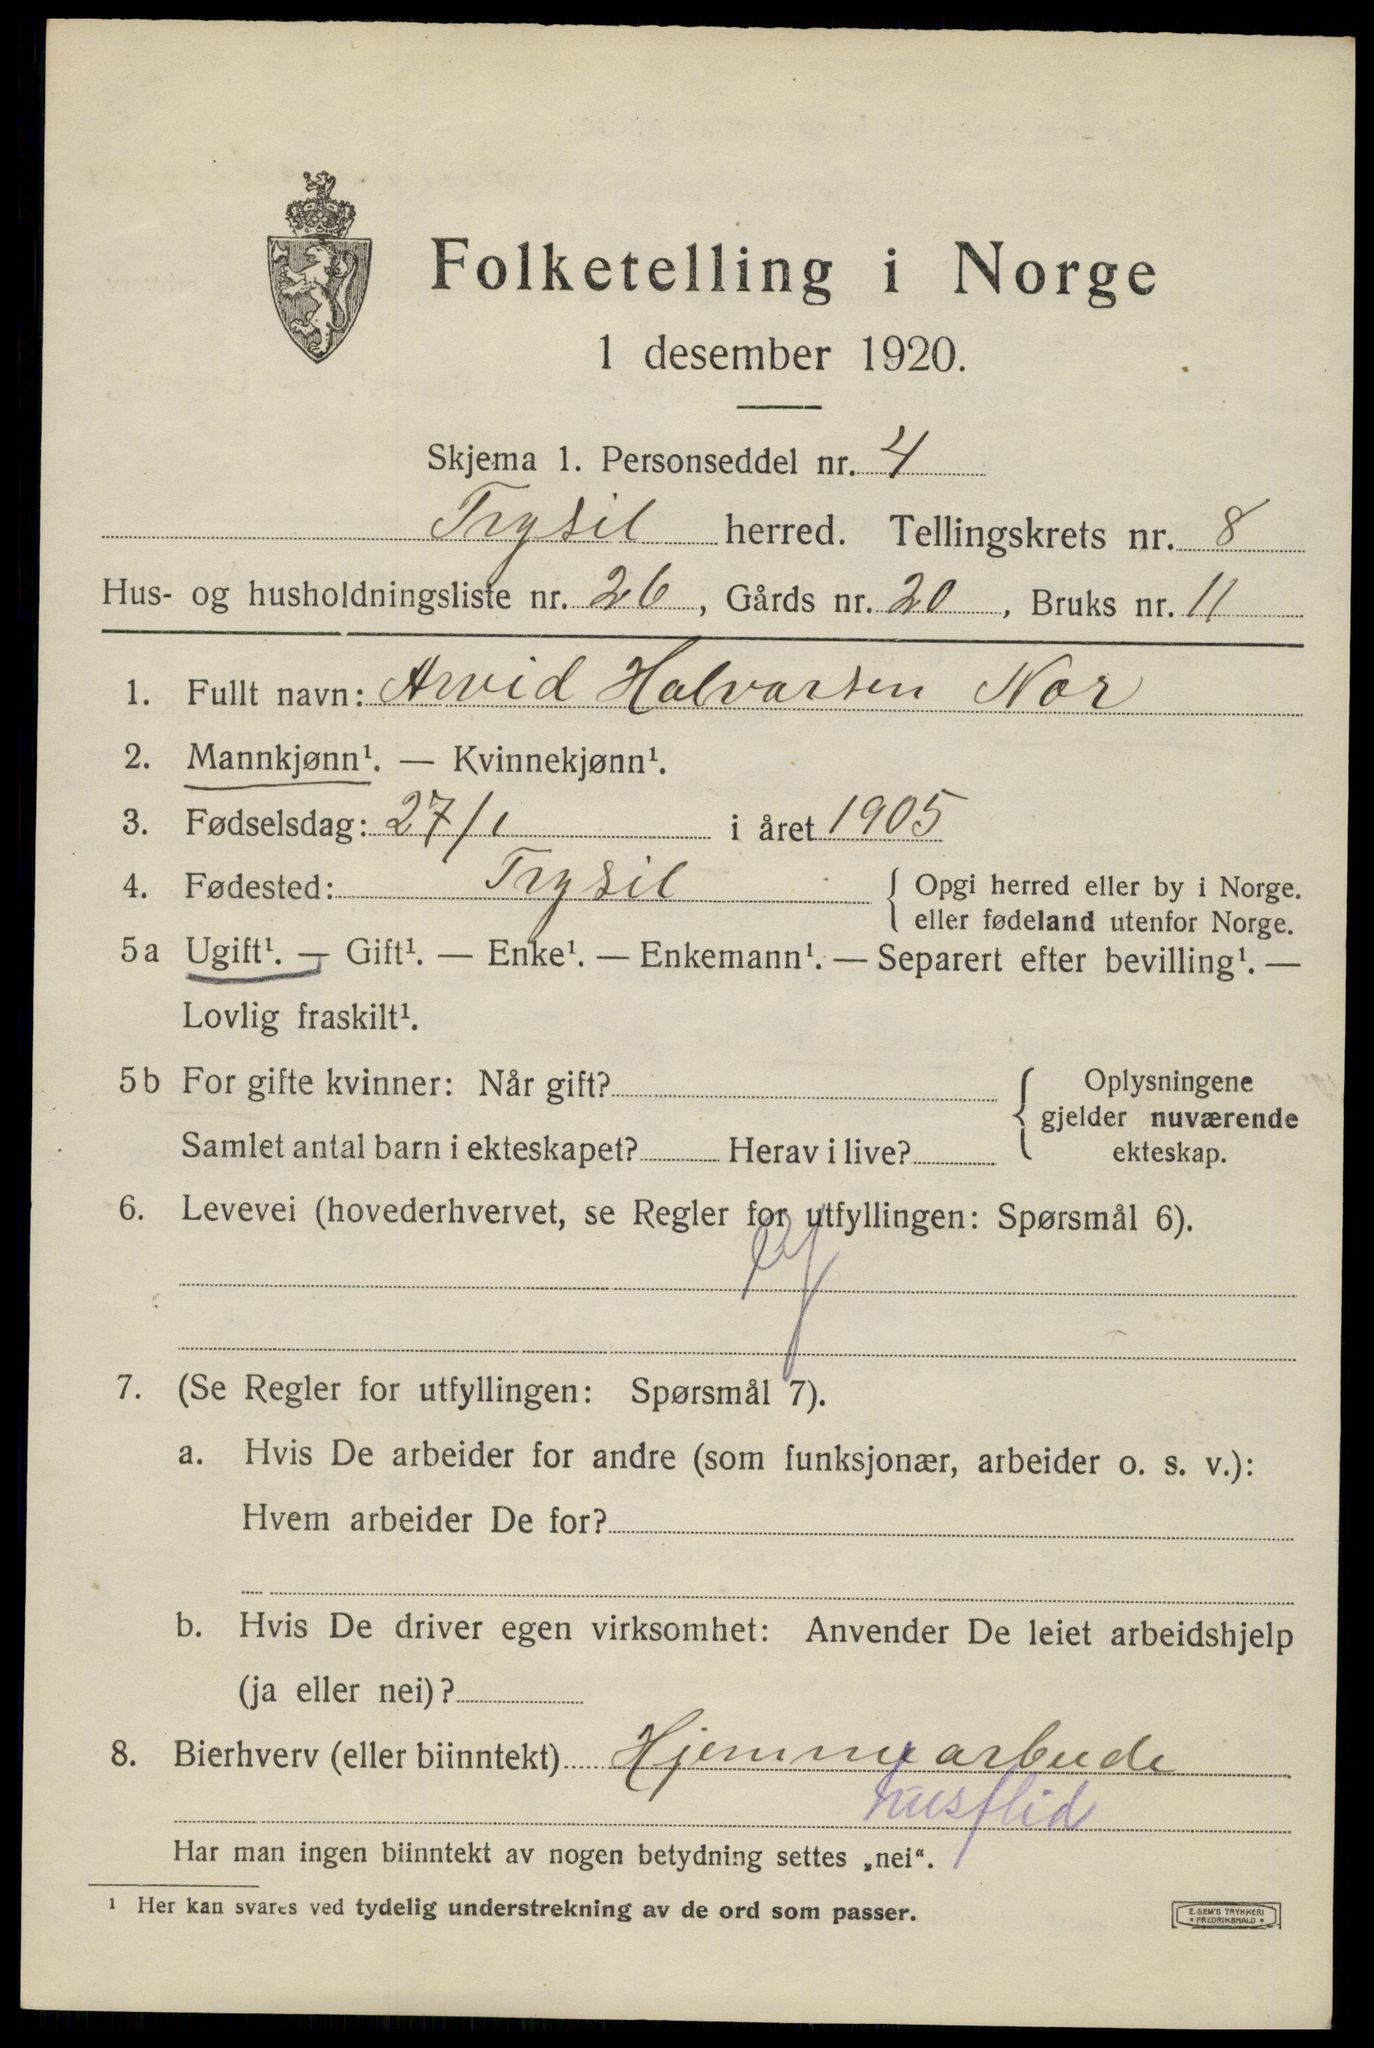 Folketelling i Norge
1 desember 1920.
Skjema 1. Personseddel nr. 4
Trysil herred. Tellingskrets nr. 8
Hus- og husholdningsliste nr. 26, Gårds nr. 20, Bruks nr. 11
1. Fullt navn: Arvid Halvarsen Nor
2. Mannkjønn¹. — Kvinnekjønn¹.
3. Fødselsdag: 27/1 i året 1905
4. Fødested: Trysil { Opgi herred eller by i Norge.
eller fødeland utenfor Norge.
5a Ugift¹. — Gift¹. — Enke¹. — Enkemann¹. — Separert efter bevilling¹. —
Lovlig fraskilt¹.
5b For gifte kvinner: Når gift? { Oplysningene
gjelder nuværende
Samlet antal barn i ekteskapet? Herav i live? ekteskap.
6. Levevei (hovederhvervet, se Regler for utfyllingen: Spørsmål 6).
7. (Se Regler for utfyllingen: Spørsmål 7).
a. Hvis De arbeider for andre (som funksjonær, arbeider o. s. v.):
Hvem arbeider De for?
b. Hvis De driver egen virksomhet: Anvender De leiet arbeidshjelp
(ja eller nei)?
8. Bierhverv (eller biinntekt) Hjemmearbeide
husflid
Har man ingen biinntekt av nogen betydning settes „nei“.
¹ Her kan svares ved tydelig understrekning av de ord som passer.
E. SEM'S TRYKKERI
• FREDRIKSHALD •